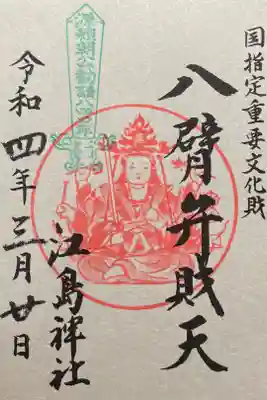 国指定重要文化財
八臂弁財天
江島神社
令和四年三月廿日